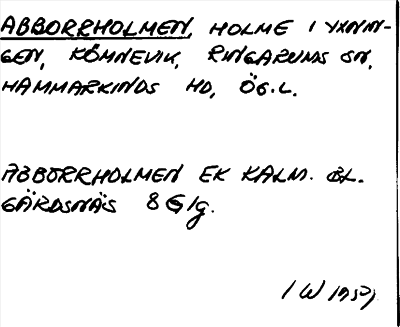 ABBORRHOLMEN, HOLME I YXNIN-
GEN, KÖMNEVIK, RINGARUMS SN,
HAMMARKINDS HD, ÖG.L.
ABBORRHOLMEN EK KALM. BL.
GÄRDSNÄS 8 G Ig.
I W 1959